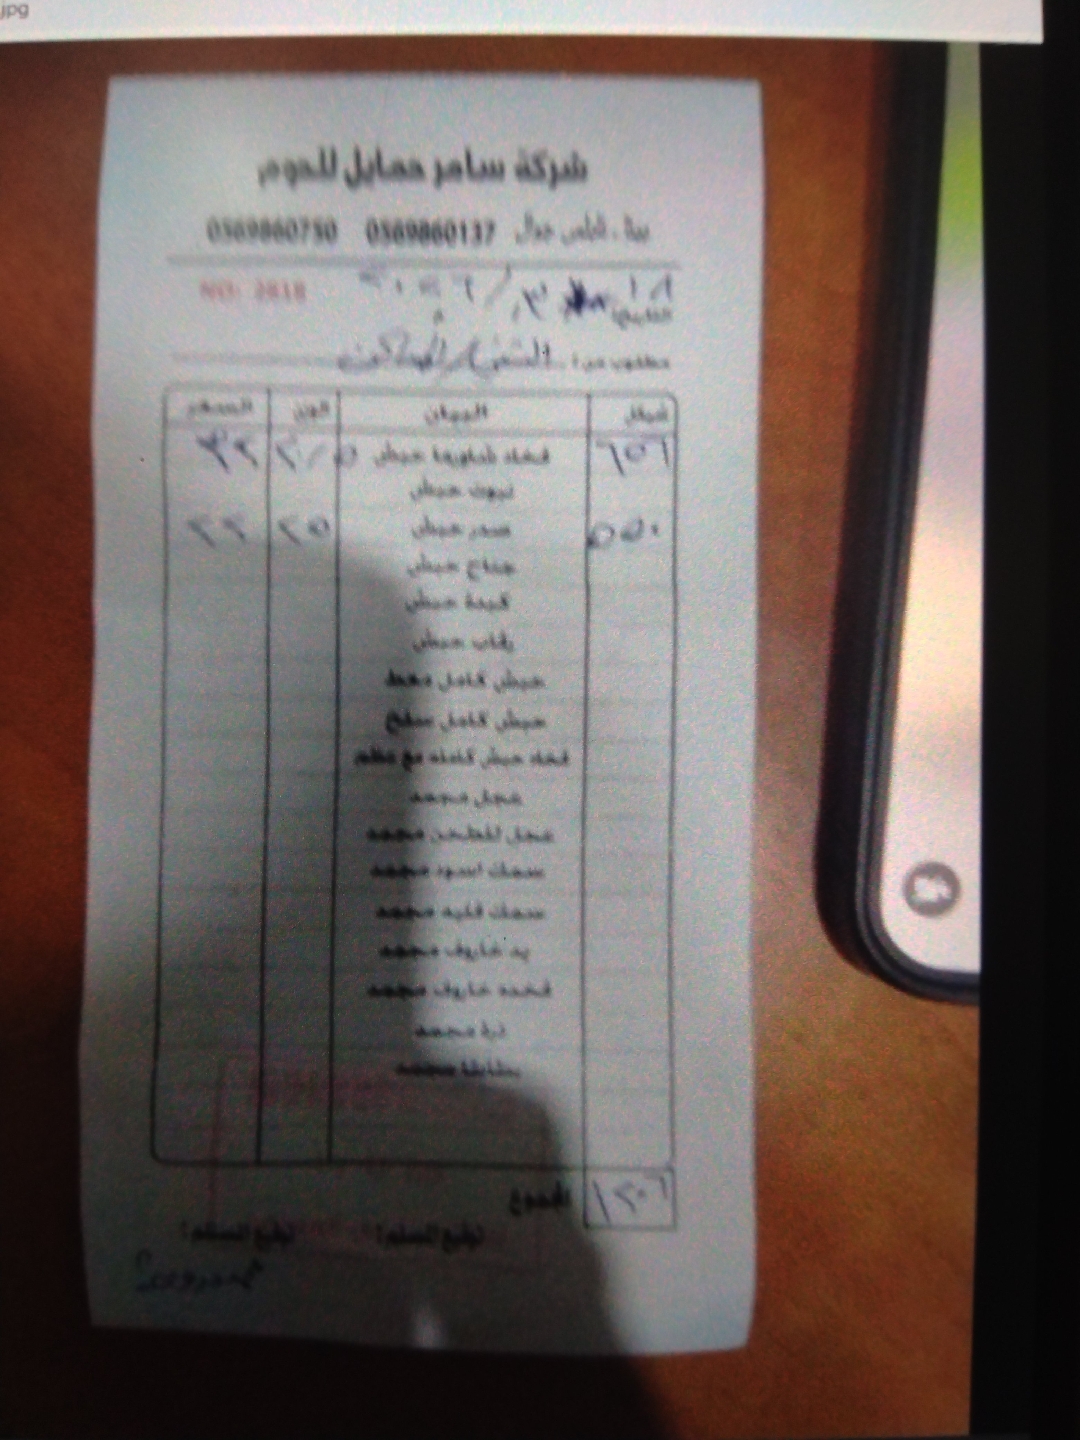 .jpg
شركة سامر حمايل للحوم
بيتا - نابلس جوال 0569860137 0569860750
التاريخ: ١٨ /٣ /٢٠٢٦ NO: 2618
مطلوب من:
شيكل البيان الوزن السعر
٦٥٦ فخاد شاورما حبش ٢٠/٥ ٣٢
حبش
٥٥٠ صدر حبش ٢٥ ٢٢
جناح حبش
كبدة حبش
رقاب حبش
حبش كامل
حبش كامل مفرغ
فخاد حبش كامله مع عظم
عجل مجمد
عجل للطحن مجمد
سمك اسود مجمد
سمك فليه مجمد
يد خاروف مجمد
فخده خاروف مجمد
ذرة مجمد
بطاطا مجمد
المجموع ١٢٠٦
توقيع المسلم: توقيع المستلم: